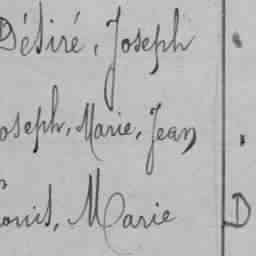 Désiré, Joseph
oseph, Marie, Jean
ouis, Marie D